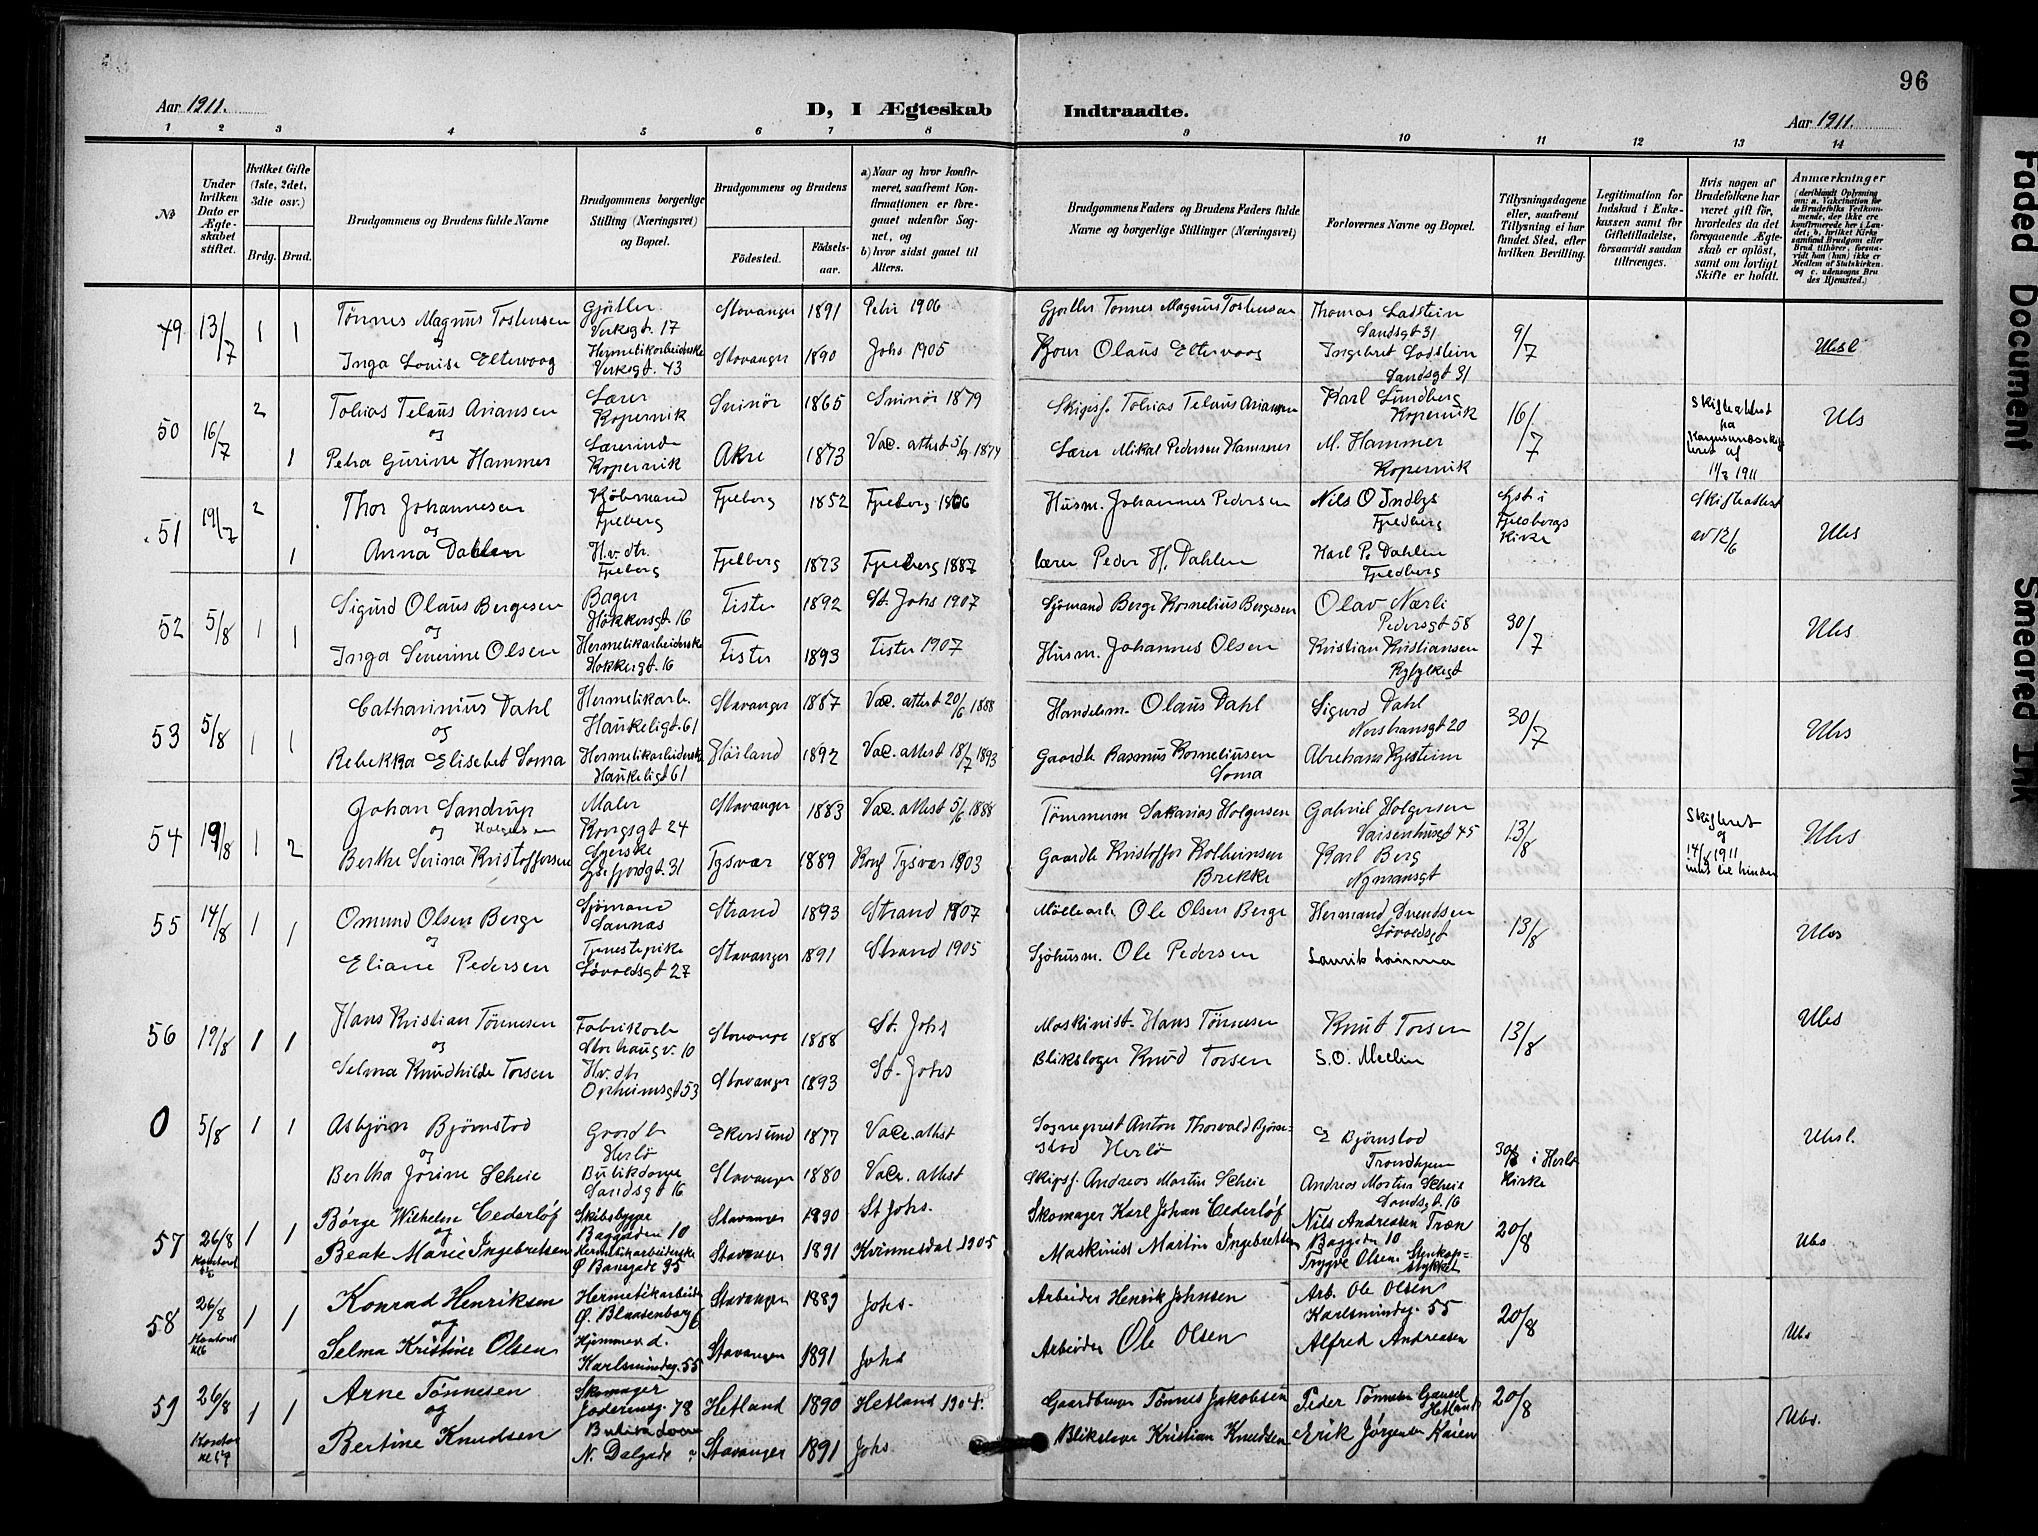 96
Aar 1911.
D, I Ægteskab Indtraadte.
Aar 1911.
1 2 3 4 5 6 7 8 9 10 11 12 13 14
№
Under hvilken Dato er Ægteskabet stiftet.
Hvilket Gifte (1ste, 2det, 3die osv.)
Brdg. Brud.
Brudgommens og Brudens fulde Navne
Brudgommens borgerlige Stilling (Næringsvei) og Bopæl.
Brudgommens og Brudens
Fødested.
Fødsels-aar.
a) Naar og hvor konfirmeret, saafremt Konfirmationen er foregaaet udenfor Sognet, og
b) hvor sidst gaaet til Alters.
Brudgommens Faders og Brudens Faders fulde Navne og borgerlige Stillinger (Næringsvei)
Forlovernes Navne og Bopæl.
Tillysningsdagene eller, saafremt Tillysning ei har fundet Sted, efter hvilken Bevilling.
Legitimation for Indskud i Enkekassen samt for Giftetilladelse, forsaavidt saadan tiltrænges.
Hvis nogen af Brudefolkene har været gift før, hvorledes da det foregaaende Ægteskab er opløst, samt om lovligt Skifte er holdt.
Anmærkninger
(deriblandt Oplysning om: a. Vakcination for de Brudefolks Vedkommende, der ikke ere konfirmerede her i Landet; b. hvilket Kirkesamfund Brudgom eller Brud tilhører, forsaavidt han (hun) ikke er Medlem af Statskirken, og c. udensogns Brudes Hjemsted.)
49 13/7 1 1 Tønnes Magnus Tostensen Gjørtler Verksgt. 17 Stavanger 1891 Petri 1906 Gjørtler Tønnes Magnus Tostensen Thomas Ladstein Sandsgt 31 9/7
og
Inga Louise Eltervaag Hermetikarbeiderske Verksgt. 43 Stavanger 1890 Johs 1905 Olaus Eltervaag Ingebret Ladstein Sandsgt 31
50 16/7 2 Tobias Telaus Ariansen Lærer Kopervik 1865 1879 Skipsf. Tobias Telaus Ariansen Karl Lundberg Kopervik 16/7 Skifteattest fra
og
1 Petra Gurine Hammer Lærerinde Kopervik Akre 1873 Vac. attest 5/9 1874 Lærer Mikal Pedersen Hammer M. Hammer Kopervik 1911
51 19/7 2 Thor Johannesen Kjøbmand Fjelberg Fjelberg 1852 Fjelberg 1866 Husm. Johannes Pedersen Nils O Indbys Fjeldberg Lyst i Fjelbergs Kirke Skifteattest av 12/6
og
1 Anna Dahlen H.v. dtr. Fjelberg Fjelberg 1873 Fjelberg 1887 Lærer Peder H. Dahlen Karl P. Dahlen Fjeldberg
52 5/8 1 1 Sigurd Olaus Bergesen Bager Høkkersgt 16 Tister 1892 St. Johs 1907 Sjømand Berge Kornelius Bergesen Olav Nærli Pedersgt 58 30/7
og
Inga Severine Olsen Hermetikarbeiderske Høkkergt. 16 Tister 1893 Tister 1907 Husm. Johannes Olsen Kristian Kristiansen Ryfylkegt
53 5/8 1 1 Catharinius Dahl Hermetikarb. Haukeligt. 61 Stavanger 1887 Vac. attest 20/6 1888 Handelsm. Olaus Dahl Sigurd Dahl 30/7
og
Rebekka Elisebet Soma Hermetikarbeiderske Haukeligt 61 Høiland 1892 Vac. attest 18/7 1893 Gaardb Rasmus Korneliussen Soma
54 19/8 1 2 Johan Sandrup Holgersen Maler Kongsgt 24 Stavanger 1883 Vac. attest 5/6 1888 Tømmerm Sakarias Holgersen Gabriel Holgersen Vaisenhusgt 45 13/8 Skifteret
og
Berthe Serina Kristoffersen Syerske Lysefjordgt. 31 Tysvær 1889 Konf Tysvær 1903 Gaardb Kristoffer Brekke Karl Berg Nymansgt 14/8 1911 intet til hinder
55 14/8 1 1 Omund Olsen Berge Sjømand Strand 1893 Strand 1907 Møllearb Ole Olsen Berge Hermand Svendsen Løvoldsgt 13/8
og
Eliane Pedersen Tjenestepike Løvoldsgt 27 Stavanger 1891 Strand 1905 Sjøhusm. Ole Pedersen
56 19/8 1 1 Hans Kristian Tønnesen Fabrikarb Storhaugv. 10 Stavanger 1888 St. Johs Maskinist Hans Tønnesen Knut Torsen 13/8
og
Selma Knudhilde Torsen H.v. dtr Opheimsgt 53 Stavanger 1893 St. Johs Blikslager Knud Torsen S.O. Meelin
0 5/8 1 1 Asbjørn Bjørnstad Gaardbr Herlø Ekersund 1877 Vacc. attest Sogneprest Anton Thorvald Bjørnestad Herlø E Bjørnstad Trondhjem 30/7 i Herlø Kirke
og
Bertha Jørine Scheie Butikdame Sandsgt 16 Stavanger 1880 Vacc. attest Skipsf. Andreas Martin Scheie Andreas Martin Scheie Sandsgt. 16
57 26/8 1 1 Børge Wilhelm Cederløf Skibsbygger Baggaden 10 Stavanger 1890 St Johs. Skomager Karl Johan Cederløf Nils Andreasen Træn Baggaden 10 20/8
Kontoret og
Beate Marie Ingebretsen Hermetikarbeiderske Ø Banegade 95 Stavanger 1891 Kvinnesdal 1905 Maskinist Martin Ingebretsen Trygve Olsen
58 26/8 1 1 Konrad Henriksen Hermetikarbeider Ø. Blaasenborg 6 Stavanger 1889 Johs. Arbeider Henrik Johnsen Arb. Ole Olsen Karlsmindeg. 55 20/8
Kontoret kl 6 og
Selma Kristine Olsen Hjemmev. d. Karlsmindeg. 55 Stavanger 1891 Johs Arbeider Ole Olsen Alfred Andreasen
59 26/8 1 1 Arne Tønnesen Skomager Jæderensg. 78 Hetland 1890 Hetland 1904. Gaardbruger Tønnes Jakobsen Peder Tønnesen Gausel Hetland 20/8
og
Bertine Knudsen N. Dalgade Stavanger 1891 Johs. Kristian Knudsen Erik Jørgensen
Faded Document
Smeared Ink